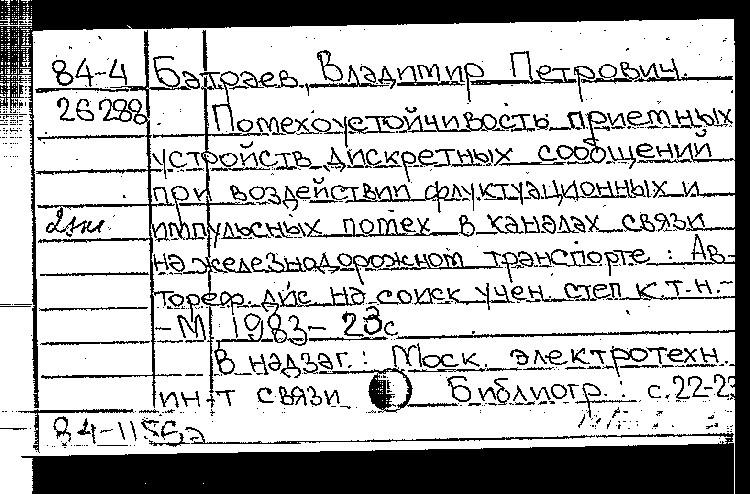 84-4 Батраев, Владимир Петрович.
26288 Помехоустойчивость приемных
устройств дискретных сообщений
при воздействии флуктуационных и
2экз. импульсных помех в каналах связи
на железнодорожном транспорте: Ав-
тореф. дис. на соиск. учен. степ. к.т.н.-
-М 1983- 23с
В надзаг.: Моск. электротехн.
ин-т связи Библиогр.: с.22-23
84-1156а